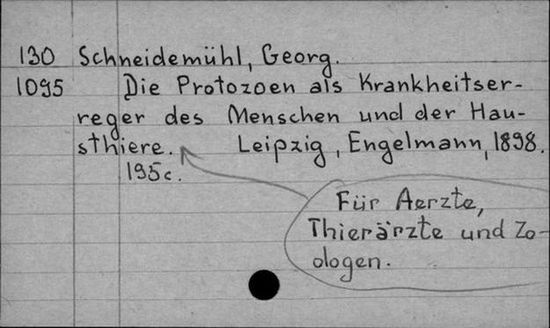 130 Schneidemühl, Georg.
1095 Die Protozoen als Krankheitser-
reger des Menschen und der Hau-
sthiere. Leipzig, Engelmann, 1898.
195c.
Für Aerzte,
Thierärzte und Zo-
ologen.